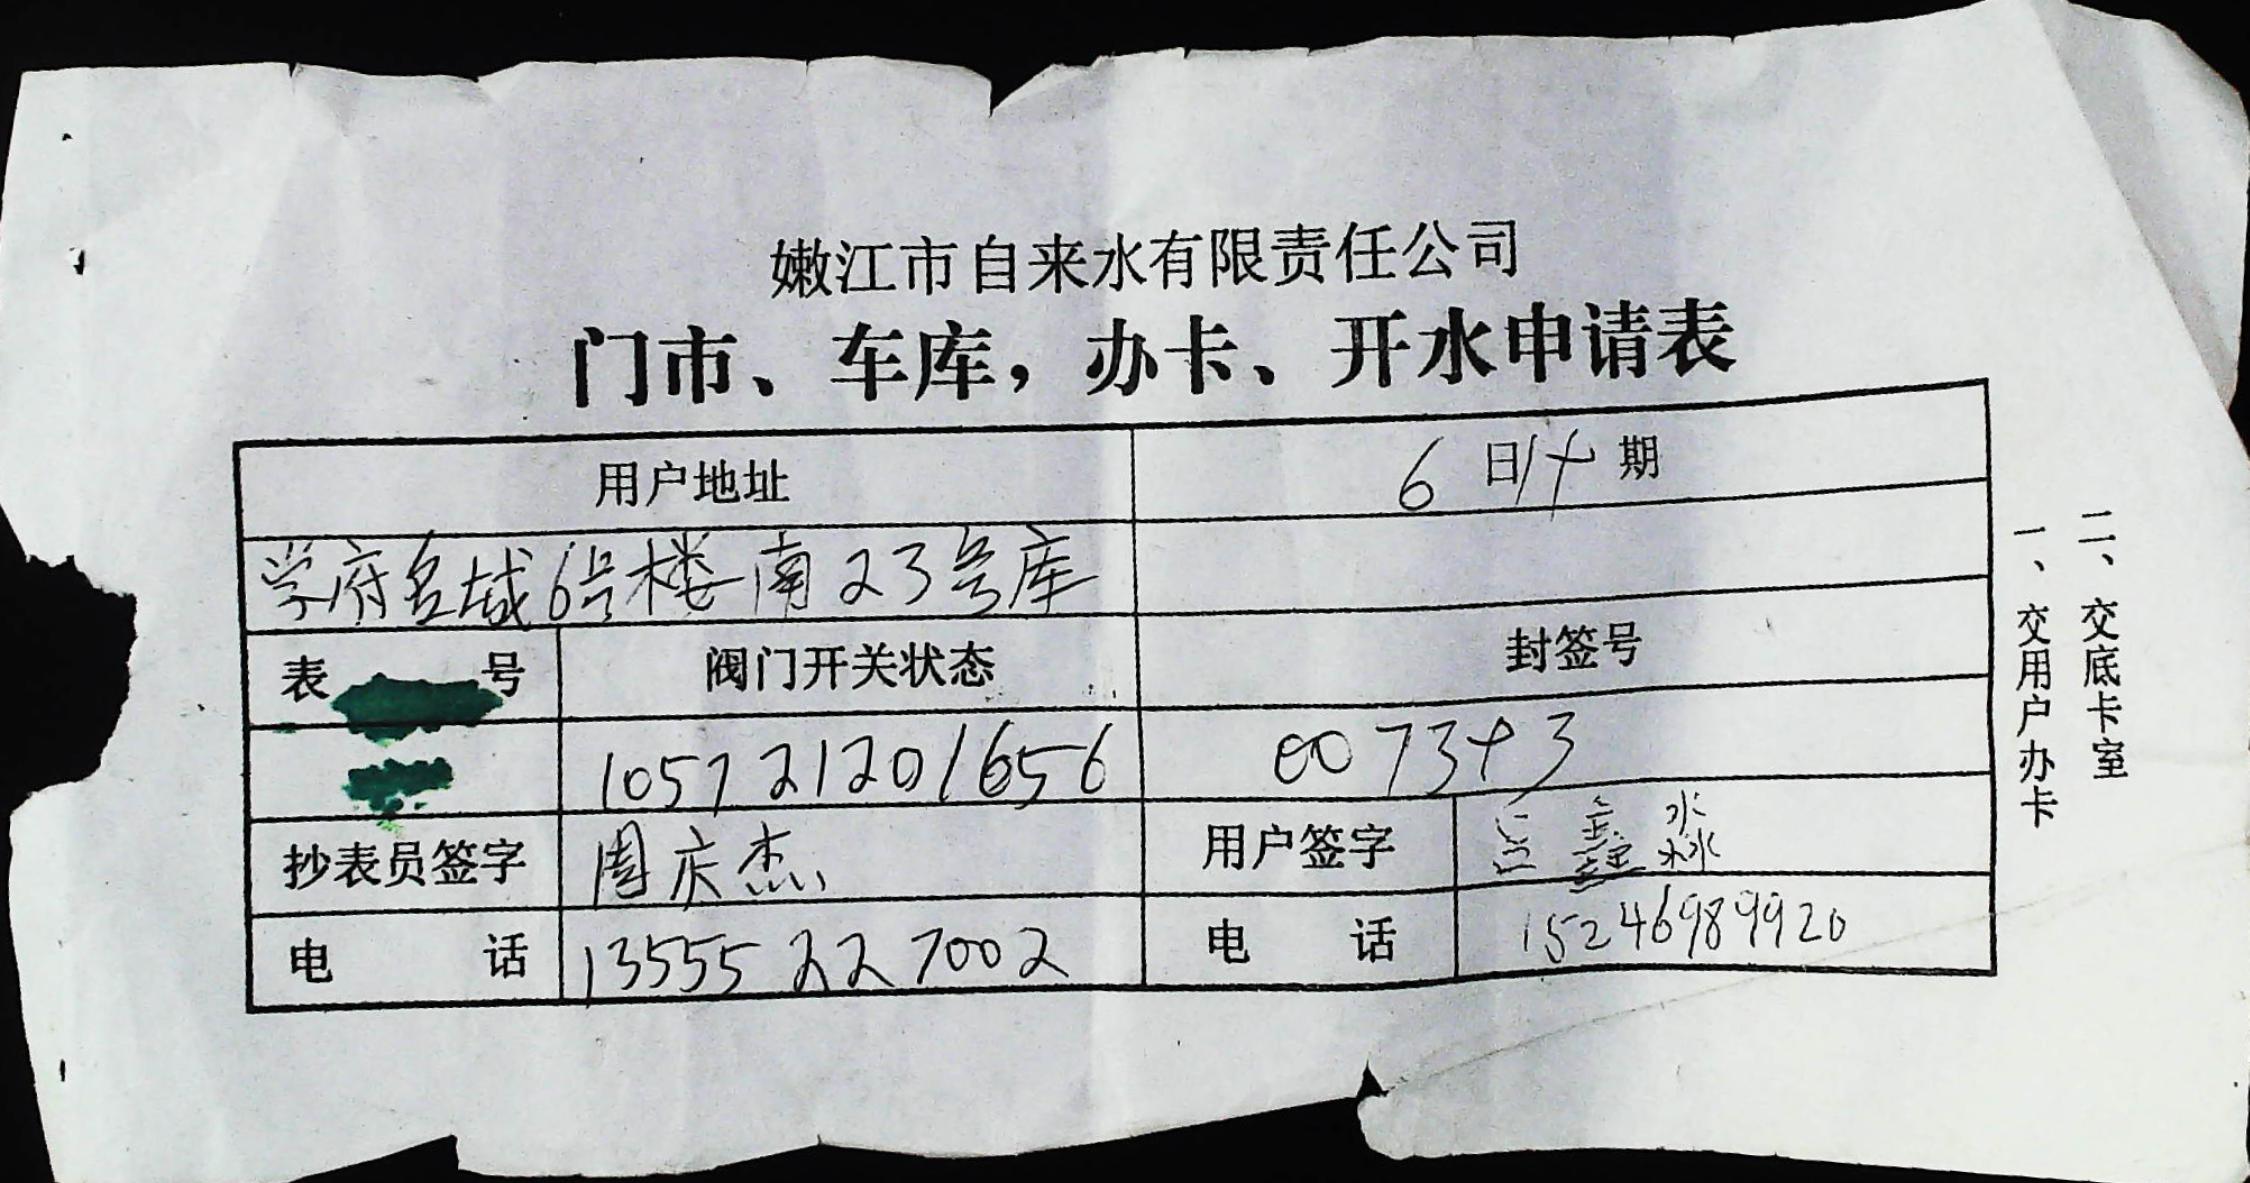 嫩江市自来水有限责任公司
门市、车库，办卡、开水申请表
用户地址 6 日14 期
学府名域6号楼南23号库
表 号 阀门开关状态 封签号
105721201656 007343
抄表员签字 周庆杰 用户签字 鑫淼
电 话 13555227002 电 话 15246989920
一、交用户办卡
二、交底卡室